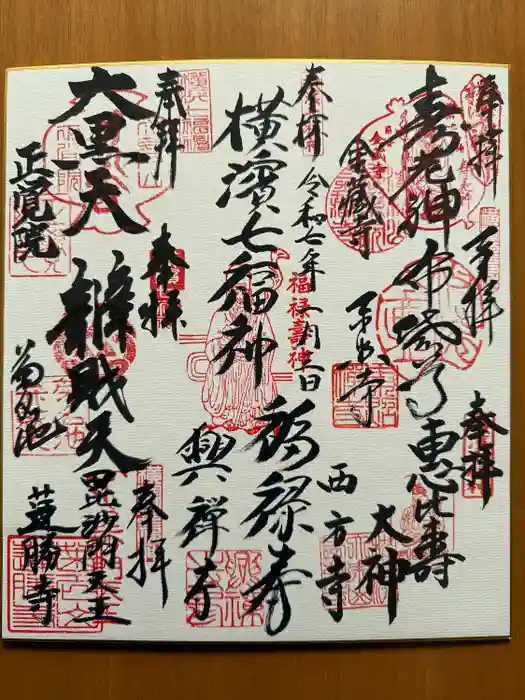 奉拝
寿老神
奉拝
宝蔵寺
布袋尊
奉拝
恵比寿
大神
奉拝
令和七年
一月
日
西方寺
福禄寿神
横濱七福神
福禄寿
興禅寺
奉拝
奉拝
大黒天
正覚院
辨財天
奉拝
毘沙門天王
蓮勝寺